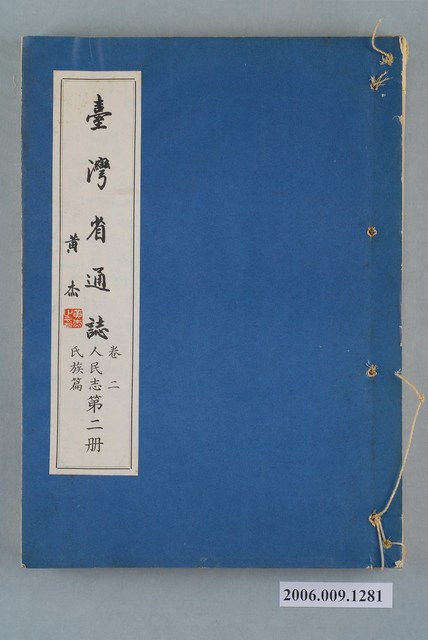 臺灣省通誌
黃杰
卷二
人民志第二册
氏族篇
2006.009.1281